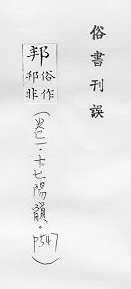 俗書刊誤
邦
俗作
邦非
(卷一·十七陽韻·P547)